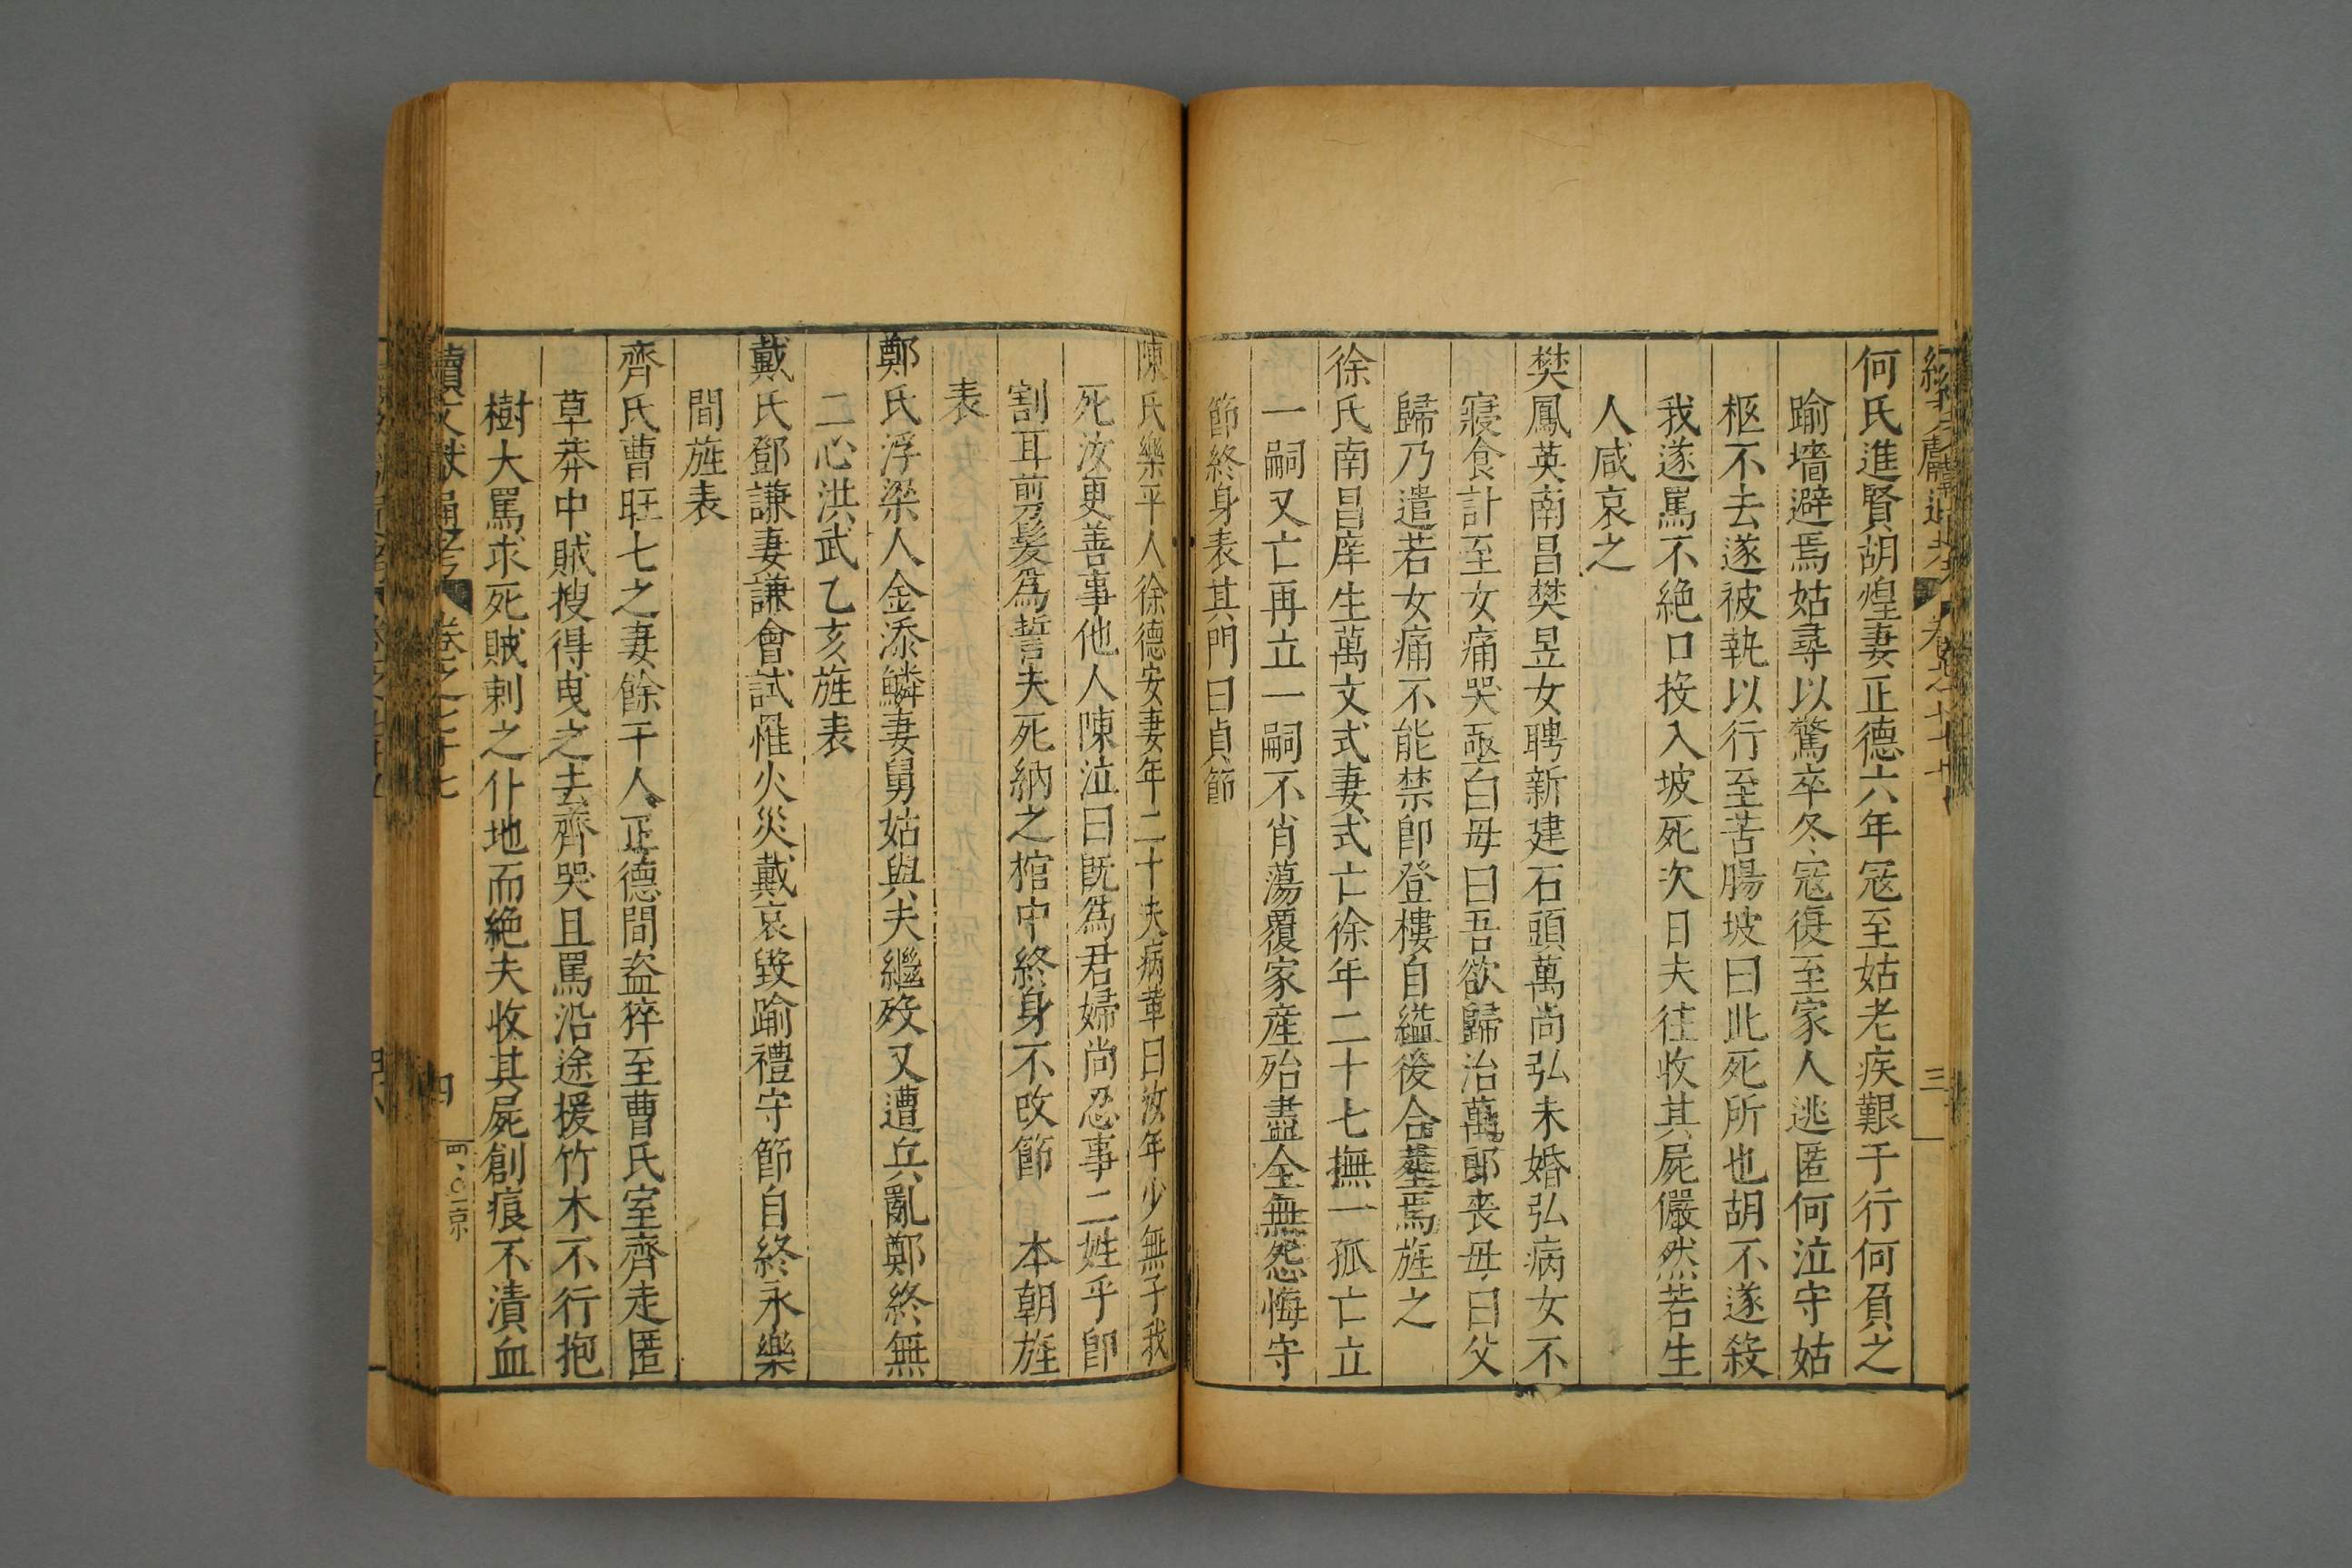 何氏進賢胡煌妻正德六年寇至姑老疾艱于行何負之
踰墻避焉姑尋以驚卒冬寇復至家人逃匿何泣守姑
柩不去遂被執以行至苦腸坡曰此死所也胡不遂殺
我遂罵不絕口挍入坡死次日夫往收其屍儼然若生
人咸哀之
樊鳳英南昌樊昱女聘新建石頭萬尚弘未婚弘病女不
寢食計至女痛哭亟白母曰吾欲歸治萬郎喪母曰父
歸乃遣若女痛不能禁卽登樓自縊後合塟焉旌之
徐氏南昌庠生萬文式妻式亡徐年二十七撫一孤亡立
一嗣又亡再立一嗣不肖蕩覆家産殆盡全無怨悔守
節終身表其門曰貞節
陳氏樂平人徐德安妻年二十夫病革曰汝年少無子我
死汝更善事他人陳泣曰既爲君婦尚忍事二姓乎卽
割耳剪髮爲誓夫死納之棺中終身不改節 本朝旌
表
鄭氏浮梁人金添鱗妻舅姑與夫繼歿又遭兵亂鄭終無
二心洪武乙亥旌表
戴氏鄧謙妻謙會試罹火災戴哀毀踰禮守節自終永樂
間旌表
齊氏曹旺七之妻餘干人正德間盗猝至曹氏室齊走匿
草莽中賊搜得曳之去齊哭且罵沿途援竹木不行抱
樹大罵求死賊刺之仆地而絶夫收其屍創痕不漬血
續文獻通考 卷之七十七 四